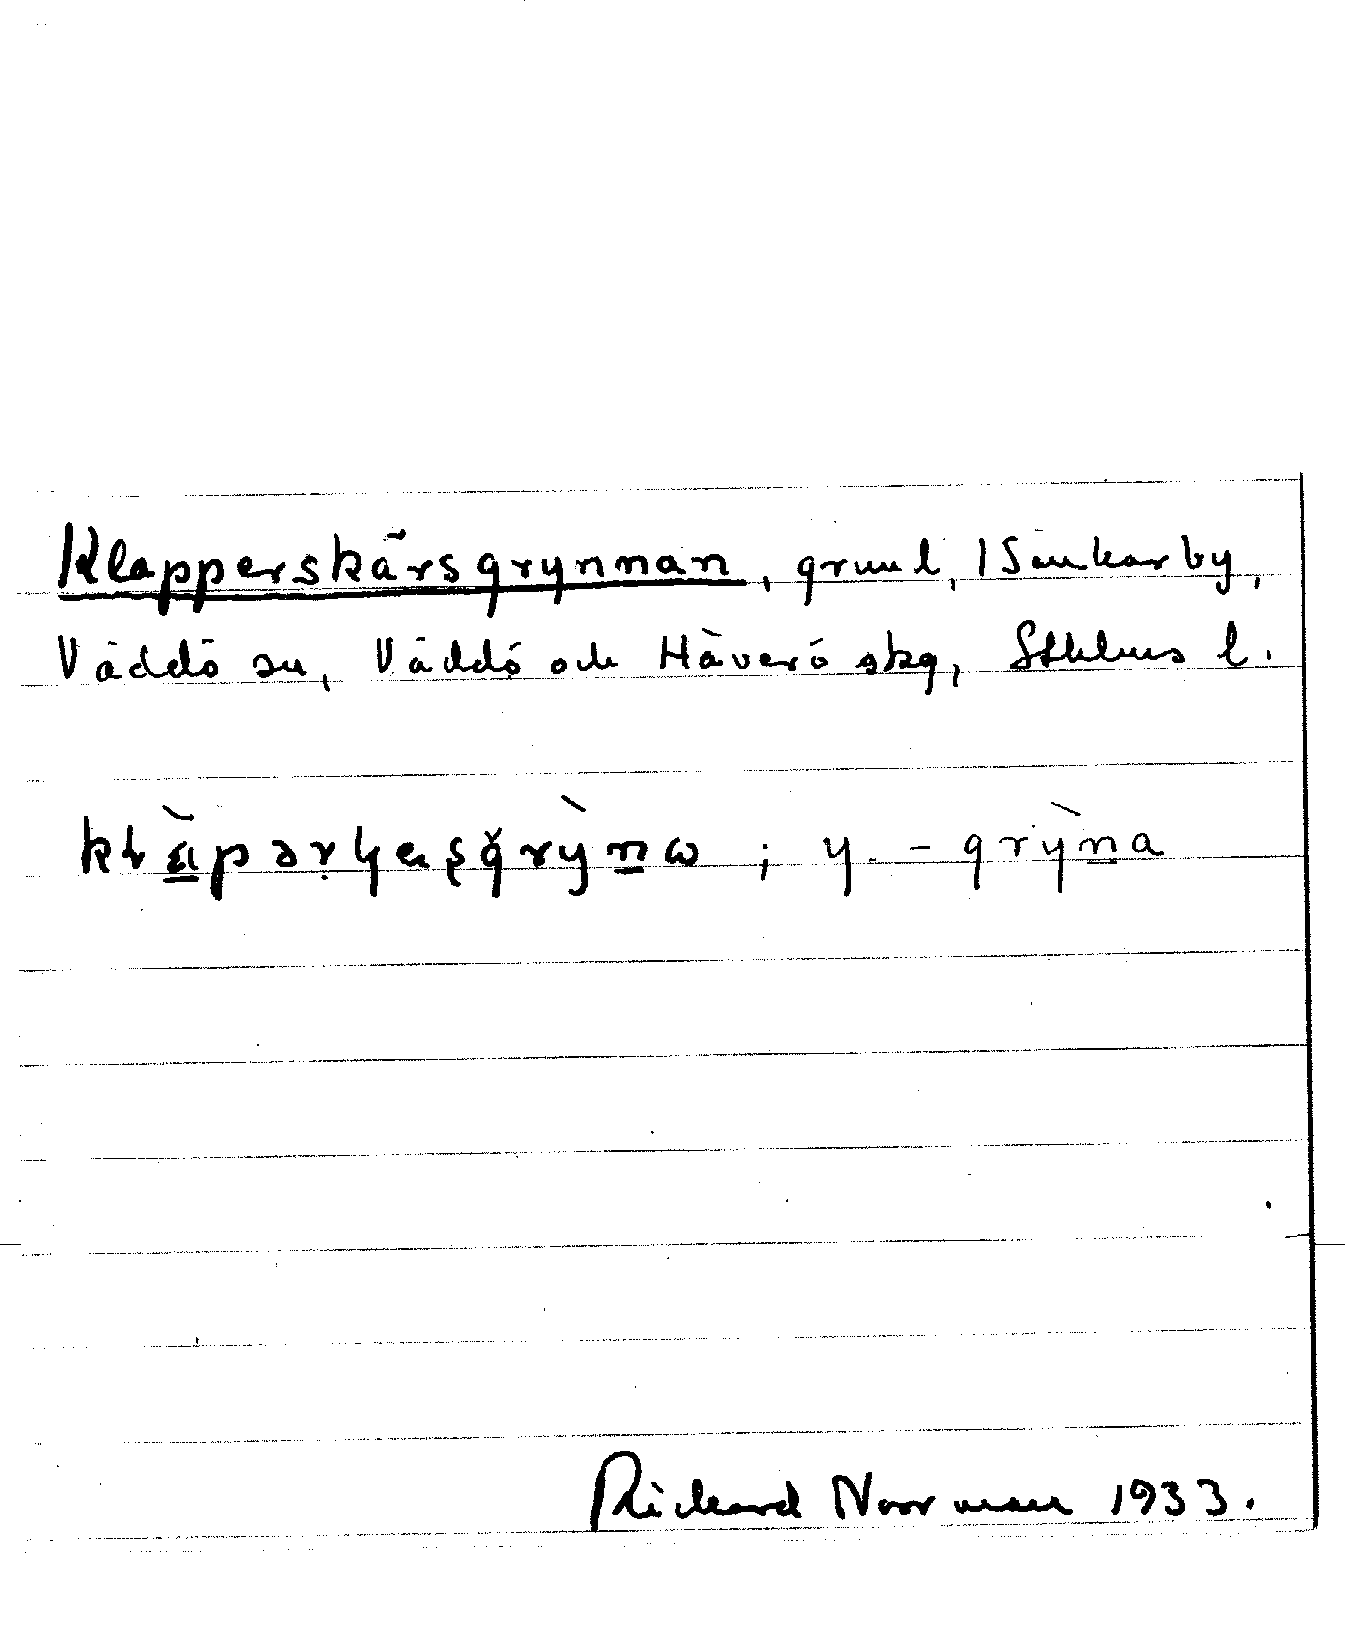 Klapperskärsgrynnan, grund, i Senkarby,
Väddö sn, Väddö och Häverö skg, Sthlms l.
; y. - grỳna
Rickard Norman 1933.